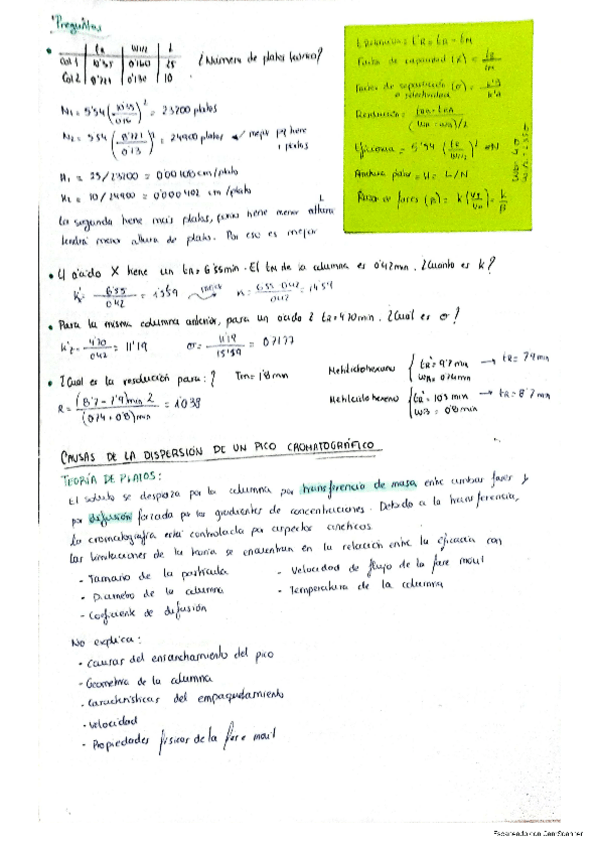 Preguntas
tR | W1/2 | L
Col 1 | 10'55 | 0'160 | 25
Col 2 | 8'721 | 0'130 | 10
¿Número de platos teóricos?
N1 = 5'54 = 23200 platos
N2 = 5'54 (8'721 / 0'13)² = 24900 platos ← mejor pq tiene
↓ platos
H1 = 25/23200 = cm/plato
H2 = 10/24900 = 0'000402 cm/plato
La segunda tiene más platos, tiene menor altura
tendrá menor altura de platos. Por eso es mejor
t Retención = t'R = tR - tM
Factor de capacidad (K) =
Factor de separación (σ) = k'B / k'A
o selectividad
Resolución = (tRB - tRA) / (WA - WB)/2
Eficiencia = 5'54 (tR / W1/2)² = N
Altura plato = H = L/N
Razón de fases (β) =
• El ácido X tiene un tR = 6'55min. El tM de la columna es 0'42min. ¿Cuánto es k?
K' = 6'55 / 0'42 = 6'55 - 0'42 / 0'42
• Para la misma columna anterior, para un ácido 2 tR = 4'70min. ¿Cuál es σ?
k'2 = 4'70 / 0'42 = 11'19 σ = 11'19 / 15'59 =
• ¿Cuál es la resolución para:? Tm = 1'8min
R = (8'7 - 7'9)min 2 / (0'74 + 0'8)min = 1'038
Metilciclohexano → tR = 7'9min
Metilciclohexeno → tR = 8'7min
W2 = 0'8min
CAUSAS DE LA DISPERSIÓN DE UN PICO CROMATOGRÁFICO
TEORÍA DE PLATOS:
El soluto se desplaza por la columna por transferencia de masa entre ambas fases y
por difusión forzada por los gradientes de concentraciones. Debido a la transferencia,
la cromatografía está controlada por aspectos cinéticos.
Las limitaciones de la teoría se encuentran en la relación entre la eficacia con
- Tamaño de la partícula - Velocidad de flujo de la fase móvil
- Diámetro de la columna - Temperatura de la columna
- Coeficiente de difusión
No explica:
- Causas del ensanchamiento del pico
- Geometría de la columna
- Características del empaquetamiento
- Velocidad
- Propiedades físicas de la fase móvil
Escaneado con CamScanner